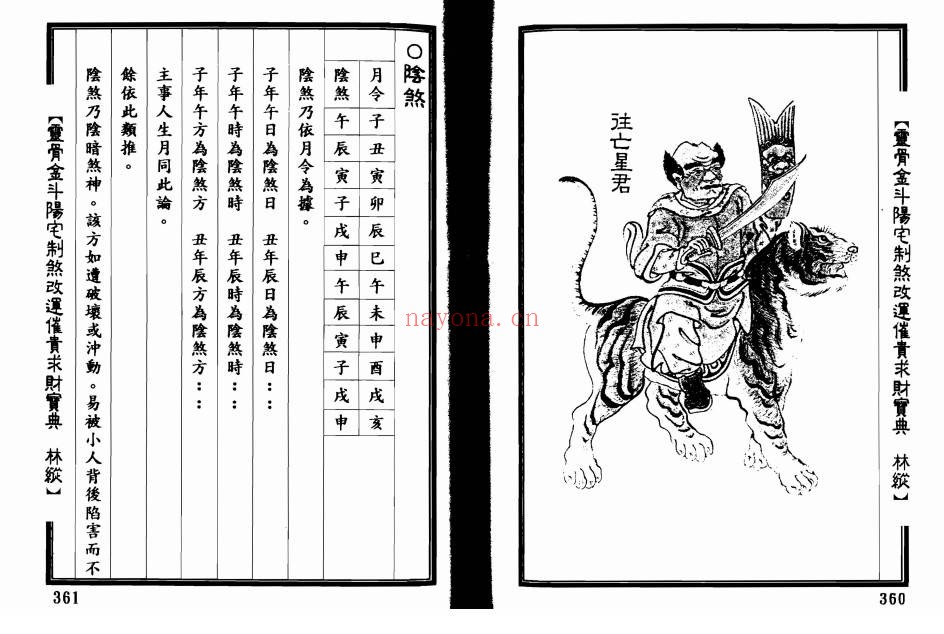 【靈骨金斗陽宅制煞改運催貴求財寶典　林縱】
往亡星君
360
○陰煞
月令子丑寅卯辰巳午未申酉戌亥
陰煞午辰寅子戌申午辰寅子戌申
陰煞乃依月令為據。
子年午日為陰煞日　丑年辰日為陰煞日：：
子年午時為陰煞時　丑年辰時為陰煞時：：
子年午方為陰煞方　丑年辰方為陰煞方：：
主事人生月同此論。
餘依此類推。
陰煞乃陰暗煞神。該方如遭破壞或沖動。易被小人背後陷害而不
【靈骨金斗陽宅制煞改運催貴求財寶典　林縱】
361
nayona.cn